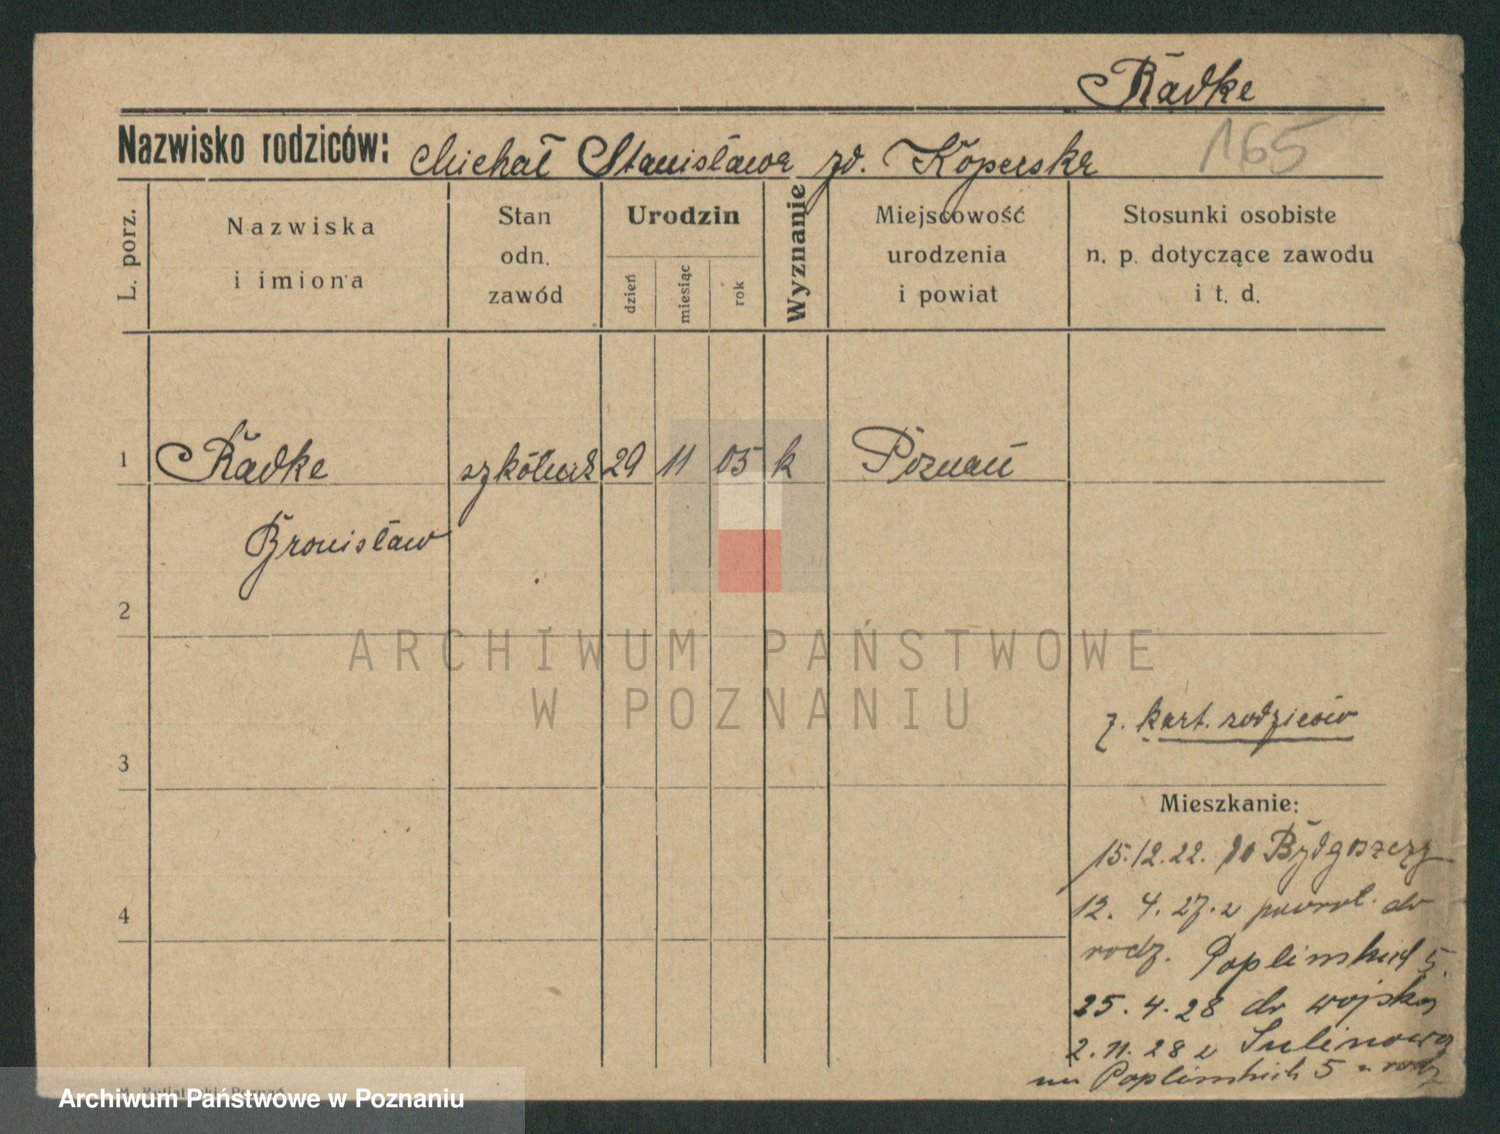 Radke
165
Nazwisko rodziców: Michał Stanisława zd. Koperska
L. porz.
Nazwiska
i imiona
Stan
odn.
zawód
Urodzin
dzień
miesiąc
rok
Wyznanie
Miejscowość
urodzenia
i powiat
Stosunki osobiste
n. p. dotyczące zawodu
i t. d.
1 Radke 29 11 05 k Poznań
Bronisław
2
ARCHIWUM PAŃSTWOWE
W POZNANIU
z. kart. rodziców
3
Mieszkanie:
15.12.22. do Bydgoszczy
4
12. 4. 27. z powrot. do
rodz. Poplińskich 5.
25. 4. 28 do wojska
2. 11. 28 z Sulinowa
Poplińskich 5
Archiwum Państwowe w Poznaniu